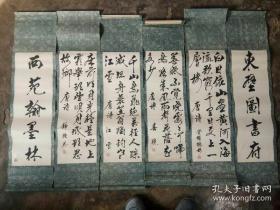 東壁圖書府
白日依山盡黃河入海
流欲窮千里目更上一
層樓 唐詩
春眠不覺曉處處聞啼
鳥夜來風雨聲花落知
多少 唐詩 春曉
千山鳥飛絕萬徑人踪
滅孤舟蓑笠翁獨釣寒
江雪 唐詩 江雪
床前明月光疑是地上
霜舉頭望明月低頭思
故鄉 唐詩 靜夜思
西苑翰墨林